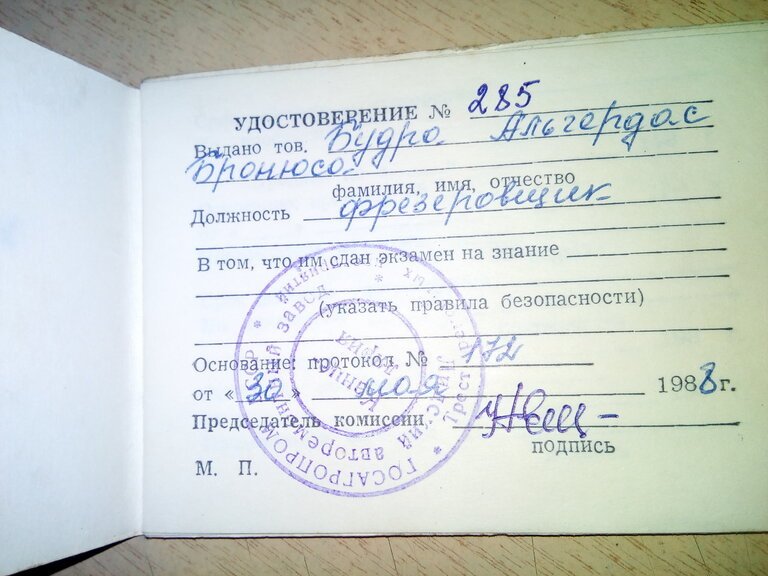 УДОСТОВЕРЕНИЕ № 285
Выдано тов. Будра Альгердас
Бронюсо
фамилия, имя, отчество
Должность фрезеровщик
В том, что им сдан экзамен на знание
(указать правила безопасности)
Основание: протокол № 172
от « 30 » мая 1988 г.
Председатель комиссии
подпись
М. П.
ГОСАГРОПРОМ
авторемонтный завод
Трест